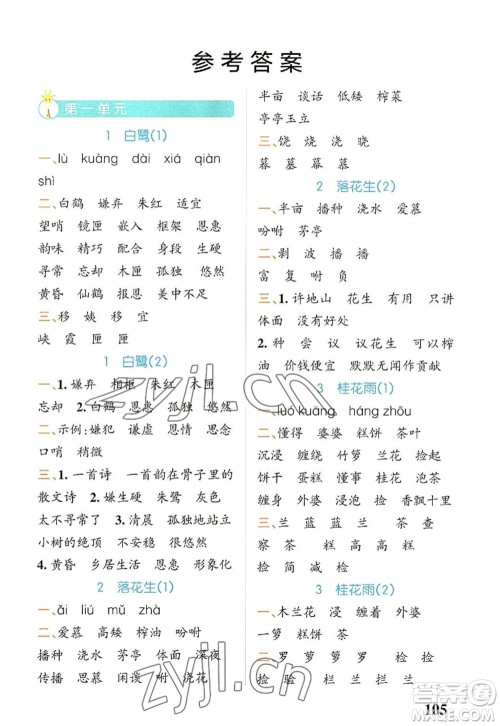 参考答案
第一单元
1 白鹭(1)
一、lù kuàng dài xiá qiàn
shì
二、白鹤 嫌弃 朱红 适宜
望哨 镜匣 嵌入 框架 恩惠
韵味 精巧 配合 身段 生硬
寻常 忘却 木匣 孤独 悠然
黄昏 仙鹤 报恩 美中不足
三、移 姨 移 宜
峡 霞 匣 匣
1 白鹭(2)
一、1.嫌弃 相框 朱红 木匣
忘却 2.白鹤 恩惠 孤独 悠然
二、示例:嫌犯 谦虚 恩情 黄昏
口哨 稍微
三、1.一首诗 一首韵在骨子里的
散文诗 2.嫌生硬 朱鹭 灰色
太不寻常了 3.清晨 孤独地站立在
小树的绝顶 很悠然 很优美
4.黄昏 乡居生活 形象化
2 落花生(1)
一、ǎi liú mǔ zhà
二、爱慕 高矮 榨油 吩咐
播种 浇水 茅亭 体面 深夜
石榴 思慕 闲谈 吩咐 浇花
半亩 谈话 低矮 榨菜
亭亭玉立
三、饶 烧 浇 晓
暮 墓 慕 幕
2 落花生(2)
一、半亩 播种 浇水 爱慕
吩咐 茅亭
二、剥 波 播 播
富 复 附 咐
三、1.许地山 花生 有用 只讲
体面 2.种 尝 议 议花生 榨
油 价钱便宜 默默无闻作贡献
3 桂花雨(1)
一、luó kuāng háng zhōu
二、懂得 婆婆 糕饼 茶叶
沉浸 缠绕 箩筐 杭州 捡起
饼干 蛋糕 完整 尤其 至少
缠着 外婆 浸在 捡 香飘十里
三、兰 蓝 蓝 茶 查
察 茶 糕 高 高 糕
捡 简 减 检
3 桂花雨(2)
一、木兰花 糕饼 浸 缠
一箩 糕饼 茶叶
二、罗 萝 箩 箩 捡 捡
俭 险 检 栏 兰 拦 兰
105
zyjl.cn
zyjl.cn
答案圈